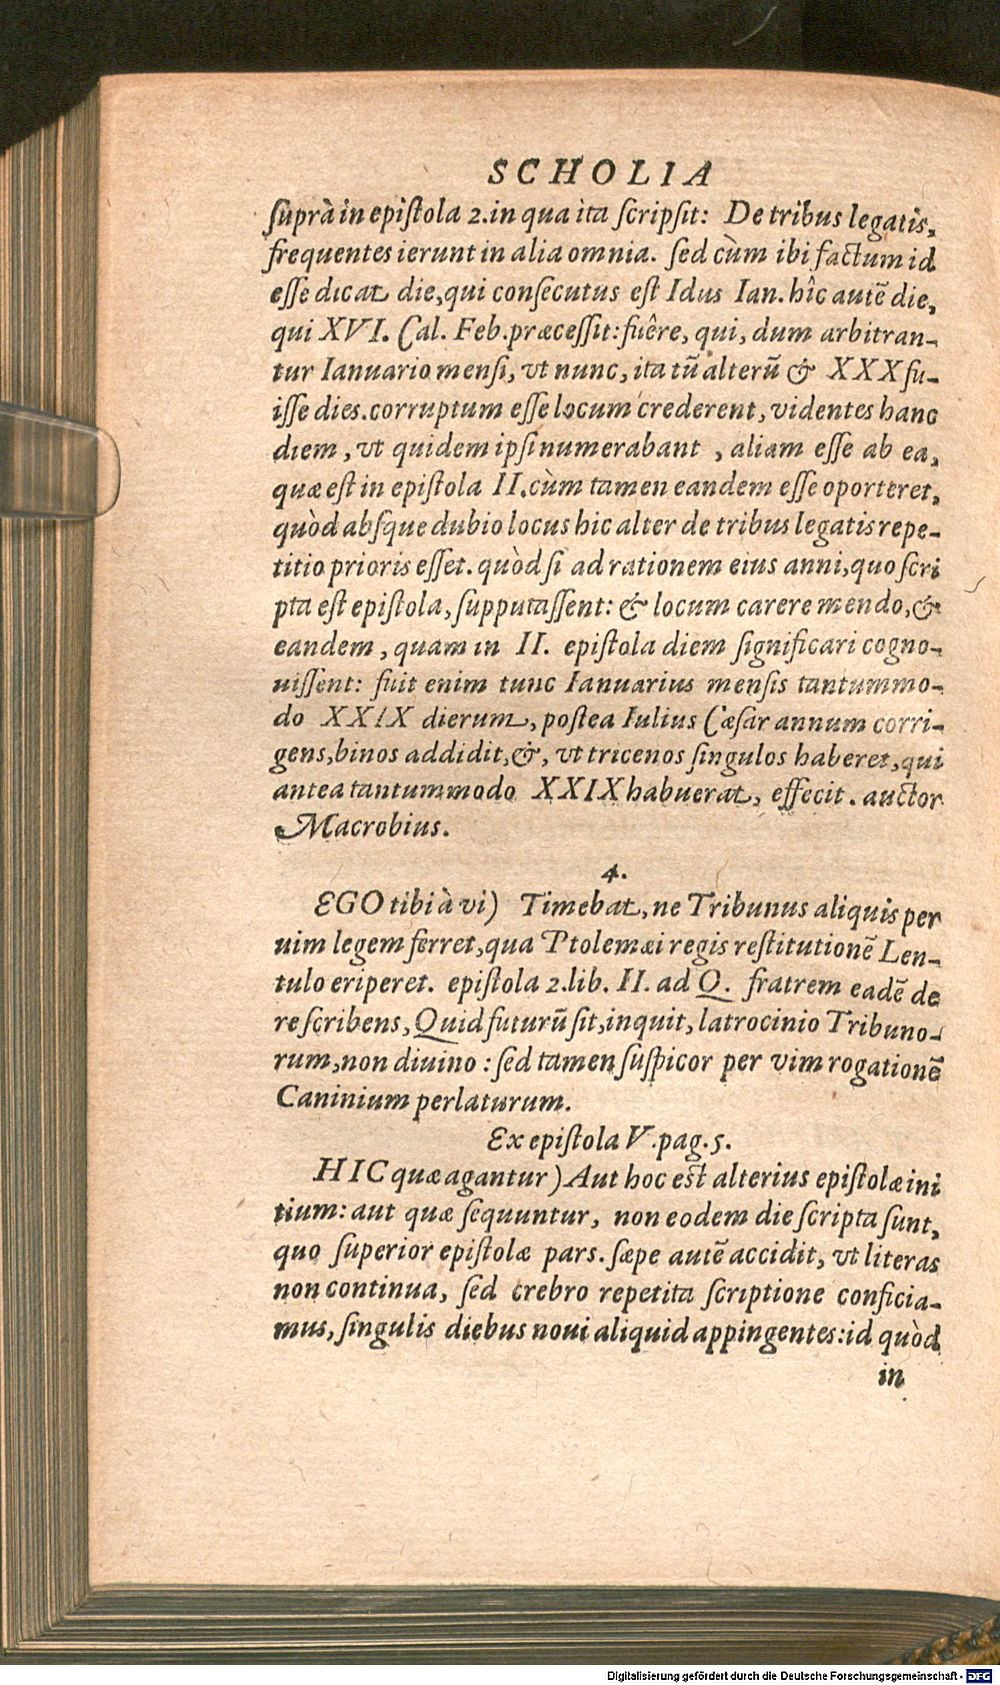 SCHOLIA
suprà in epistola 2. in qua ita scripsit: De tribus legatis,
frequentes ierunt in alia omnia. sed cùm ibi factum id
esse dicat die, qui consecutus est Idus Ian. hîc autē die,
qui XVI. Cal. Feb. præcessit: fuêre, qui, dum arbitran-
tur Ianuario mensi, vt nunc, ita tū alterū & XXX fu-
isse dies. corruptum esse locum crederent, videntes hanc
diem, vt quidem ipsi numerabant, aliam esse ab ea,
quæ est in epistola II. cùm tamen eandem esse oporteret,
quòd absque dubio locus hic alter de tribus legatis repe-
titio prioris esset. quòd si ad rationem eius anni, quo scri
pta est epistola, supputassent: & locum carere mendo, &
eandem, quam in II. epistola diem significari cogno-
uissent: fuit enim tunc Ianuarius mensis tantummo-
do XXIX dierum, postea Iulius Cæsar annum corri-
gens, binos addidit, &, vt tricenos singulos haberet, qui
antea tantummodo XXIX habuerat, effecit. auctor
Macrobius.
4.
EGO tibi à vi) Timebat, ne Tribunus aliquis per
uim legem ferret, qua Ptolemæi regis restitutionē Len-
tulo eriperet. epistola 2. lib. II. ad Q. fratrem eadē de
re scribens, Quid futurū sit, inquit, latrocinio Tribuno-
rum, non diuino: sed tamen suspicor per vim rogationē
Caninium perlaturum.
Ex epistola V. pag. 5.
HIC quæ agantur) Aut hoc est alterius epistolæ ini
tium: aut quæ sequuntur, non eodem die scripta sunt,
quo superior epistolæ pars. sæpe autē accidit, vt literas
non continua, sed crebro repetita scriptione conficia-
mus, singulis diebus noui aliquid appingentes: id quòd
in
Digitalisierung gefördert durch die Deutsche Forschungsgemeinschaft - DFG